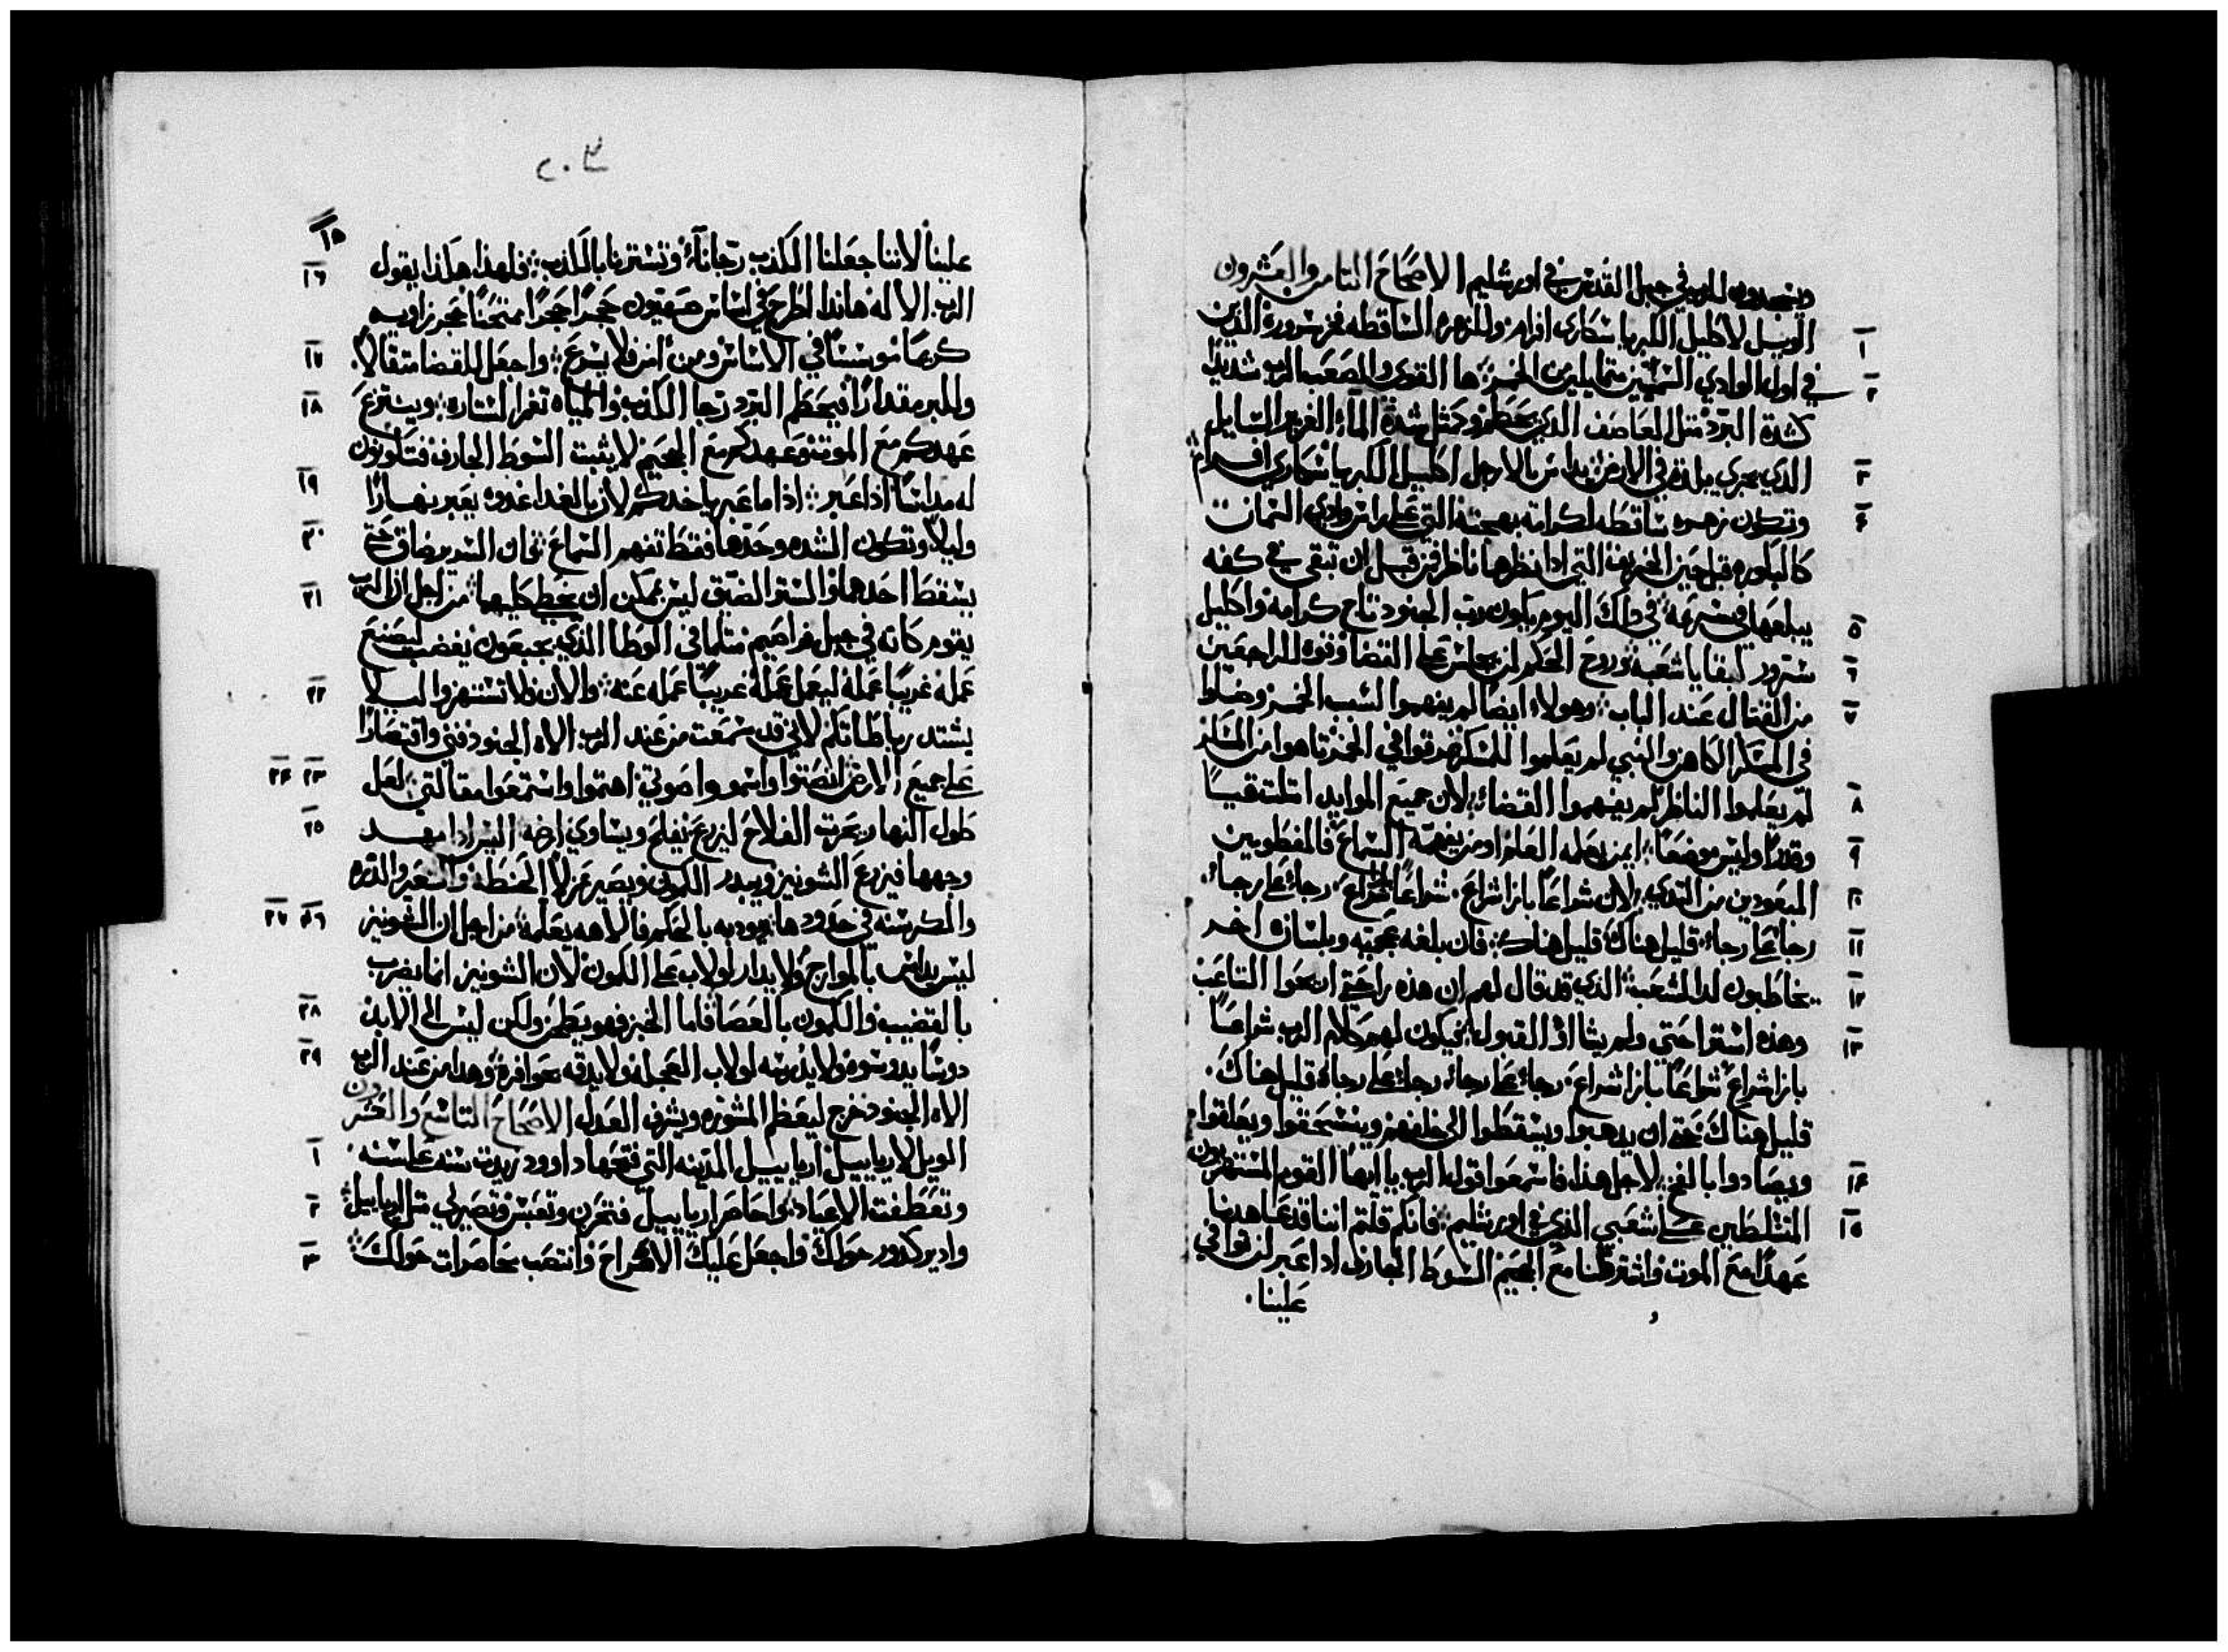 ويسجدون للرب في جبل القدس في اورشليم الاصحاح التامن والعشرون
١ الويل لاكليل الكبريا سكارى افرام وللزهره الساقطه فخر سروره الذين
٢ في اول الوادي السمين متمايلين من الخمر ها القوى والصعب الرب شديدا
كشدة البرد متل العاصف الذي يحطم وكمثل شدة المآء الغزير السايل
٣ الذي يجري يبلده في الارض يداس بالارجل اكليل الكبريا سكارى افرام
٤ وتكون زهره ساقطه لكرامة بهجته التي على راس وادي السمان
كالبكوره قبل حين الخريف التي اذا نظرها ناظر فمن قبل ان تبقى في كفه
٥ يبلعها في سرعه في ذلك اليوم يكون رب الجنود تاج كرامه واكليل
٦ سرور لبقايا شعبه وروح الحكم لمن يجلس على القضا وقوه للراجعين
٧ من القتال عند الباب وهولاء ايضا لم يفهموا لسبب الخمر وضلوا
في المسكر الكاهن والنبي لم يعلموا للسكر غرقوا في الخمر تاهوا من المسكر
٨ لم يعلموا الناظر لم يفهموا القضاء لان جميع الموايد امتلت قيسا
٩ وقذرا وليس موضعا لمن يعلمه العلم او من يفهمه السماع فالمفطومين
١٠ المبعودين من التدي لان شراعا بازا شراع شراعا بازا شراع رجاء على رجاء
١١ رجا على رجاء قليل هناك قليل هناك فان بلغه عجميه وبلسان اخر
١٢ يخاطبون لذا الشعب الذي قد قال لهم ان هذه راحتي اريحوا التاعب
١٣ وهذه استراحتي ولم يشااوا القبول فيكون لهم كلام الرب شراعا
بازا شراع شراعا بازا شراع رجاء على رجاء رجاء على رجاء قليل هناك
قليل هناك حتى ان يدهبوا ويسقطوا الى خلفهم وينسحقوا ويعلقوا
١٤ ويصادوا بالفخ لاجل هذا فاسمعوا قول الرب يا ايها القوم المستهزيون
١٥ المتسلطين على شعبي الذي في اورشليم فانكم قلتم اننا قد عاهدنا
عهدا مع الموت واشترطنا مع الجحيم السوط الجارف اذا عبر لن يوافي
علينا
٢٠٣
١٥ علينا لاننا جعلنا الكذب رجانآء وتسترنا بالكذب فلهذا هكذا يقول
١٦ الرب الاله هانذا اطرح في اساس صهيون حجرا حجرا ممتحنا حجر زاويه
١٧ كريما موسسا في الاساس ومن امن فلا يسرع واجعل للقضا متقالا
١٨ وللبر مقدارا فيحطم البرد رجا الكذب والمياه تغمر الستاره وينتزع
عهدكم مع الموت وعهدكم مع الجحيم لا يثبت السوط الجارف فتكونون
١٩ له مداسا اذا عبر اذا ما عبر ياخدكم لان بالغدا غدوه يعبر نهارا
٢٠ وليلا وتكون الشده وحدها فقط تفهم السماع فان السرير ضاق حتى
٢١ يسقط احدهما والستر الضيق ليس يمكن ان يغطي كليهما من اجل ان الرب
يقوم كانه في جبل فراصيم متلما في الوطا الذي بجبعون يغضب ليصنع
٢٢ عمله غريبا عمله ليعمل عمله غريبا عمله عنه والان فلا تستهزوا ليلا
يشتد رباطاتكم لاني قد سمعت من عند الرب الاه الجنود فني واقتصارا
٢٣ ٢٤ على جميع الارض انصتوا واسمعوا صوتي اهتموا واستمعوا مقالتي لعل
٢٥ طول النهار يحرت الفلاح ليزرع يفلح ويساوي ارضه اليس اذا مهد
وجهها فيزرع الشونيز ويبدر الكمون ويصير عزلا الحنطه والشعير والذره
٢٦ ٢٧ والكرسنه في حدودها يودبه بالحكم فالاهه يعلمه من اجل ان الشونيز
ليس يداس بالموارج ولا يدار لولاب على الكمون لان الشونيز انما يضرب
٢٨ بالقضيب والكمون بالعصا فاما الخبز فهو يطحن ولكن ليس الى الابد
٢٩ دوسا يدوسوه ولا يدرسه لولاب العجله ولا يدقه بحوافره وهذا من عند الرب
الاه الجنود خرج ليعظم المشوره ويشرف العدل الاصحاح التاسع والعشرون
١ الويل لاريابييل اريابييل المدينه التي فتحها داوود زيدت سنه على سنه
٢ وتعطفت الاعياد واحاصر اريابييل فتحزن وتعبس وتصير لي متل اريابييل
٣ وادير كدور حولك واجعل عليك الاكراح وانتصب محاصرات حولك